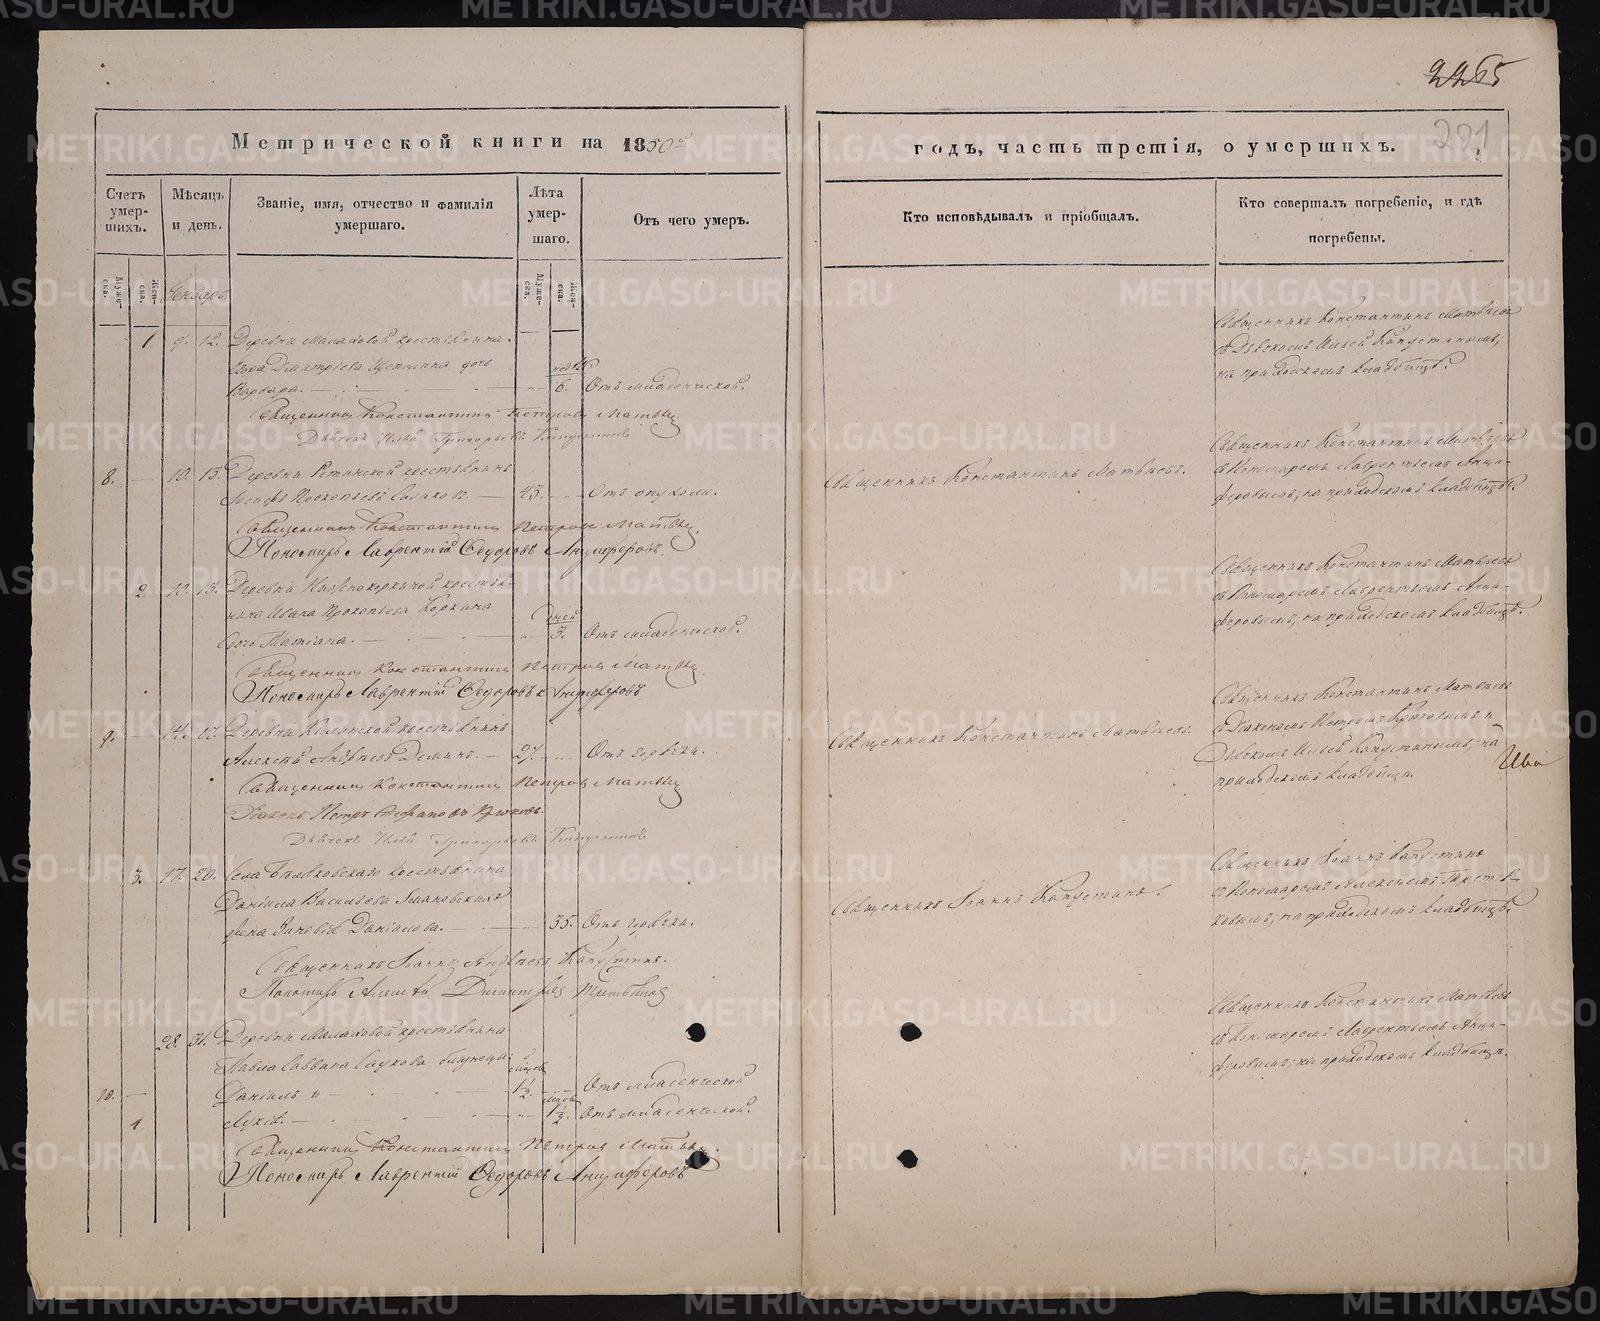 2265
291
Метрической книги на 1850й
годъ, часть третія, о умершихъ.
Счетъ умер-шихъ.
Мѣсяцъ и день.
Званіе, имя, отчество и фамилія умершаго.
Лѣта умер-шаго.
Отъ чего умеръ.
Кто исповѣдывалъ и пріобщалъ.
Кто совершалъ погребеніе, и гдѣ погребены.
Муже-ска.
Жен-ска.
Муже-ска.
Жен-ска.
Декабрь.
1 9. 12. Деревни Малаховой крестьянина
Дмитріева дочь
Варвара. 6. Отъ младенческой.
Священникъ Константинъ Петровъ Матвѣевъ
Дьячекъ Илья Григорьевъ Капустинъ
Священникъ Константинъ Матвѣевъ
съ Дьячкомъ Ильей Капустинымъ;
на приходскомъ кладбищѣ.
8. 10. 13. Деревни крестьянинъ
Прокопьевъ 43. Отъ опухоли.
Священникъ Константинъ Петровъ Матвѣевъ
Пономарь Лаврентій Ѳедоровъ Анциферовъ.
Священникъ Константинъ Матвѣевъ.
Священникъ Константинъ Матвѣевъ
съ Пономаремъ Лаврентьемъ Анци-
феровымъ; на приходскомъ кладбищѣ.
2. 10. 13. Деревни крестья-
нина Ивана Прокопьева Коркина
дней
дочь 3. Отъ младенческой.
Священникъ Константинъ Петровъ Матвѣевъ
Пономарь Лаврентій Ѳедоровъ Анциферовъ
Священникъ Константинъ Матвѣевъ
съ Пономаремъ Лаврентьемъ Анци-
феровымъ; на приходскомъ кладбищѣ.
9. 14. 17. Деревни крестьянинъ
Алексѣй Андреевъ Деминъ. 27. Отъ горячки.
Священникъ Константинъ Петровъ Матвѣевъ
Діаконъ Петръ Стефановъ Крюковъ
Дьячекъ Илья Григорьевъ Капустинъ
Священникъ Константинъ Матвѣевъ.
Священникъ Константинъ Матвѣевъ
съ Діакономъ Петромъ Крюковымъ и
Дьячкомъ Ильей Капустинымъ; на
приходскомъ кладбищѣ.
Ива
3. 17. 20. Села крестьянина
Даніила Васильева
жена Зиновія Даніилова. 35. Отъ горячки.
Священникъ Іоаннъ Андреевъ Капустинъ.
Пономарь Алексѣй Димитріевъ Третьяковъ
Священникъ Іоаннъ Капустинъ.
Священникъ Іоаннъ Капустинъ
съ Пономаремъ Алексѣемъ Третья-
ковымъ; на приходскомъ кладбищѣ.
28. 31. Деревни Малаховой крестьянина
Павла Саввина близнецы:
10. Даніилъ и 1/2 Отъ младенческой
4. 1/2. Отъ младенческой.
Священникъ Константинъ Петровъ Матвѣевъ
Пономарь Лаврентій Ѳедоровъ Анциферовъ
Священникъ Константинъ Матвѣевъ
съ Пономаремъ Лаврентьемъ Анци-
феровымъ; на приходскомъ кладбищѣ.
METRIKI.GASO-URAL.RU